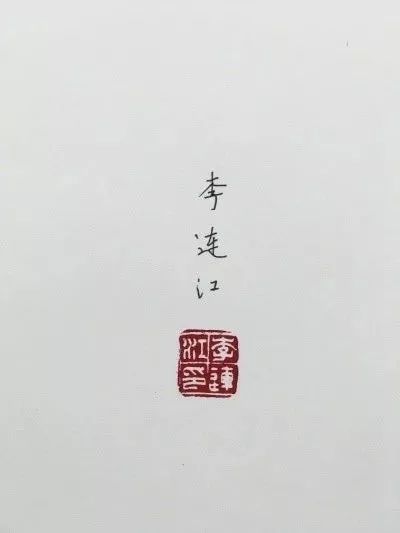 李连江
李連江印